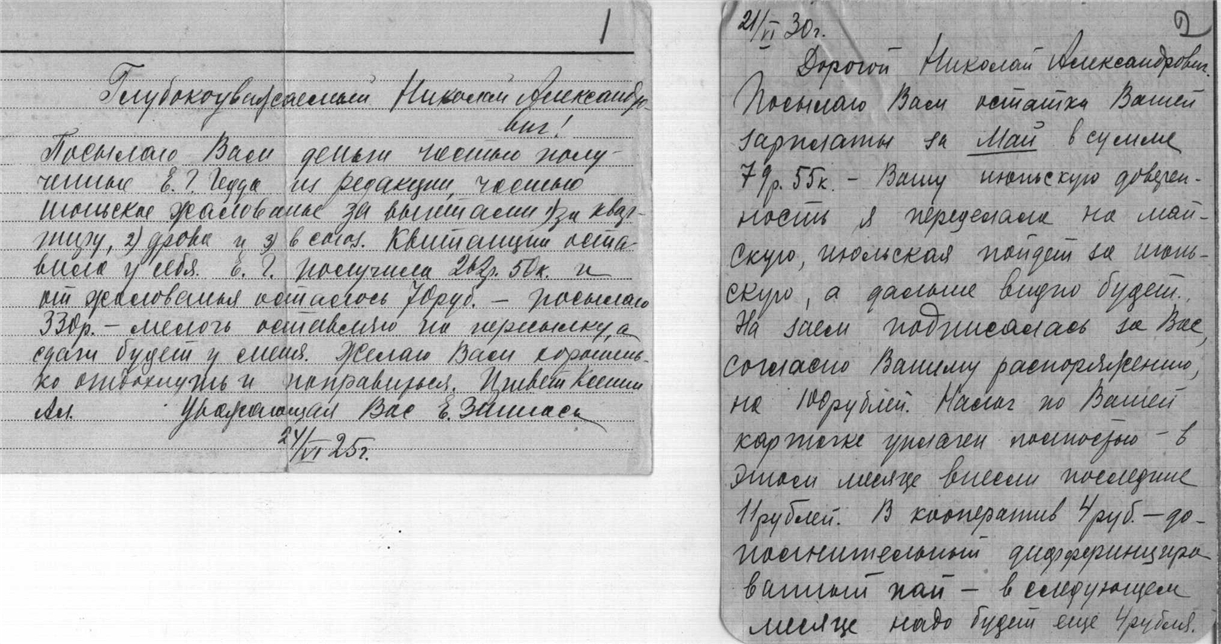 1
Глубокоуважаемый Николай Александро-
вич!
Посылаю Вам деньги частью полу-
ченные Е. Г. из редакции, частью
июньское жалованье за вычетами 1) за квар-
тиру, 2) дрова и 3) в союз. Квитанции оста-
вила у себя. Е. Г. получила 262р. 50к. и
от жалованья осталось 70руб. — посылаю
330р. — мелочь оставляю на пересылку, а
сдачи будет у меня. Желаю Вам хорошень-
ко отдохнуть и поправиться. Привет Ксении
Ал. Уважающая Вас Е.
24/VI 25г.
2
21/VI 30г.
Дорогой Николай Александрович.
Посылаю Вам остатки Вашей
зарплаты за Май в сумме
79р. 55к. — Вашу июньскую доверен-
ность я переделала на май-
скую, июльская пойдет за июнь-
скую, а дальше видно будет..
На заем подписалась за Вас,
согласно Вашему распоряжению,
на 100 рублей. Налог по Вашей
карточке уплачен полностью — в
этом месяце внесли последние
11 рублей. В кооператив 4 руб. — до-
полнительный дифференциро-
ванный пай — в следующем
месяце надо будет еще 4 рубля.